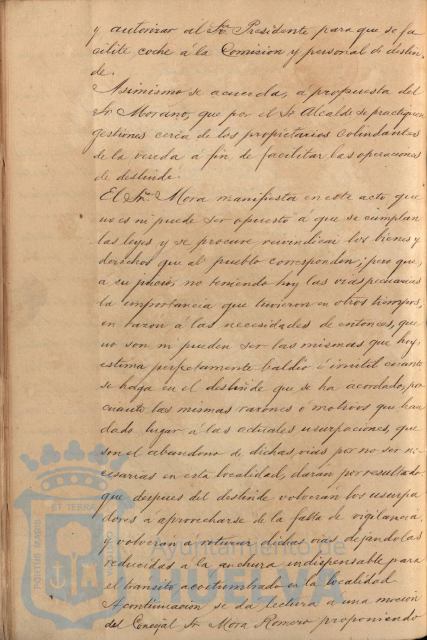 y autorizar al Sr. Presidente para que se fa
cilite coche á la Comision y personal de deslin
de.
Asimismo se acuerda, á propuesta del
Sr Morano, que por el Sr Alcalde se practiquen
gestiones cerca de los propietarios colindantes
de la vereda á fin de facilitar las operaciones
de deslinde.
El Sr. Mora manifiesta en este acto, que
no es ni puede ser opuesto á que se cumplan
las leyes y se procure reivindicar los bienes y
derechos que al pueblo corresponden; pero que,
a su juicio, no teniendo hoy las vias pecuarias
la importancia que tuvieron en otros tiempos,
en razon á las necesidades de entonces, que
no son ni pueden ser las mismas que hoy,
estima perfectamente baldio ó inutil cuanto
se haga en el deslinde que se ha acordado, por
cuanto las mismas razones ó motivos que han
dado lugar á las actuales usurpaciones, que
son el abandono de dichas vias por no ser ne-
cesarias en esta localidad, darán por resultado
que despues del deslinde volverán los usurpa
dores á aprovecharse de la falta de vigilancia,
y volverán a roturar dichas vias dejandolas
reducidas a la anchura indispensable para
el transito acostumbrado en la localidad
A continuacion se da lectura a una mocion
del Concejal Sr Mora Romero proponiendo
ET TERRA
PORTUS MARIS
Ayuntamiento de
HUELVA